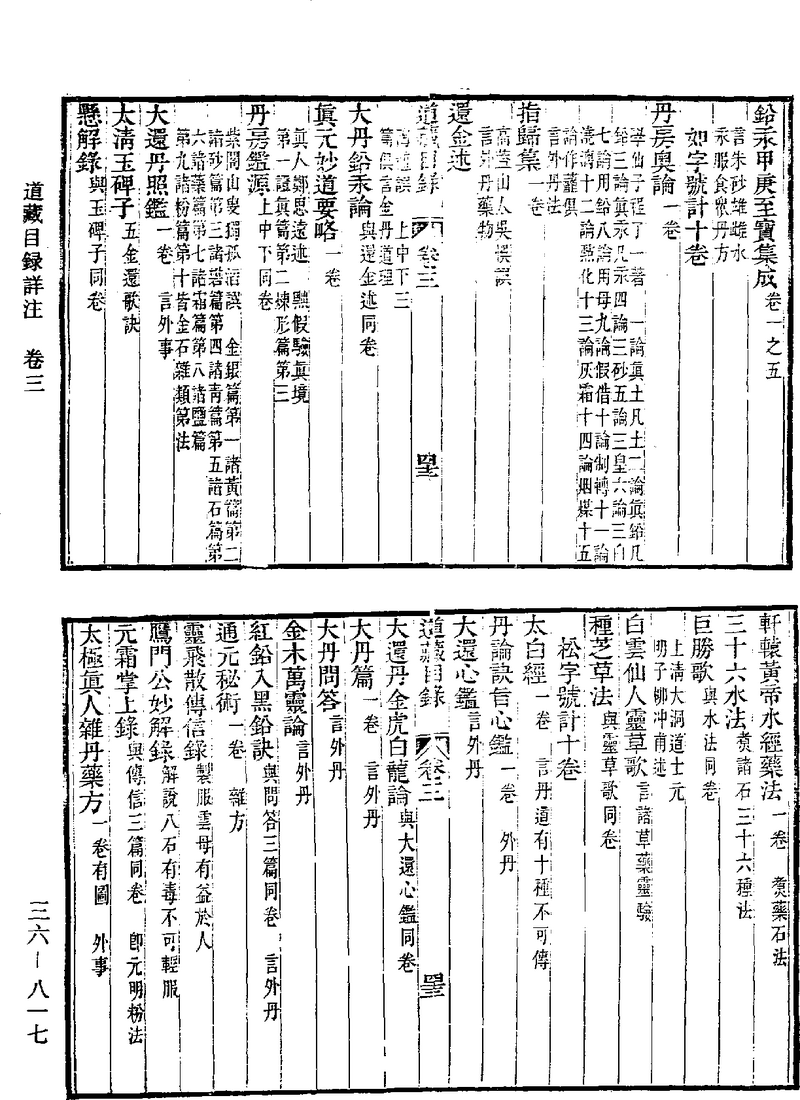 鉛汞甲庚至寶集成卷一之五
言朱砂雄雌水
汞服食敘丹方
如字號計十卷
丹房奧論一卷
學仙子程了一著 一論眞土凡土二論眞鉛凡
鉛三論眞汞凡汞四論三砂五論三皇六論三白
七論用鉛八論用母九論假借十論制轉十一論
澆淋十二論點化十三論灰霜十四論烟煤十五
論作蘺俱
言外丹法
指歸集一卷
高蓋山人吳悞譔
言外丹藥物
還金述
道藏目錄 卷三
上中下三
篇俱言金丹道理
大丹鉛汞論與還金述同卷
眞元妙道要略一卷
眞人鄭思遠述 黜假驗眞境
第一證眞篇第二煉形篇第三
丹房鑑源上中下同卷
紫閣山叟獨孤滔譔 金銀篇第一諸黃篇第二
諸砂篇第三諸礬篇第四諸青篇第五諸石篇第
六諸藥篇第七諸霜篇第八諸鹽篇
第九諸粉篇第十皆金石雜類第法
大還丹照鑑一卷 言外事
太清玉碑子五金還歌訣
懸解錄與玉碑子同卷
軒轅黃帝水經藥法一卷 煑藥石法
三十六水法煑諸石三十六種法
巨勝歌與水法同卷
上清大洞道士元
明子柳冲甫述
白雲仙人靈草歌言諸草藥靈驗
種芝草法與靈草歌同卷
松字號計十卷
太白經一卷 言丹道有十種不可傳
丹論訣旨心鑑一卷 外丹
大還心鑑言外丹
道藏目錄 卷三
大還丹金虎白龍論與大還心鑑同卷
大丹篇一卷 言外丹
大丹問答言外丹
金木萬靈論言外丹
紅鉛入黑鉛訣與問答三篇同卷 言外丹
通元秘術一卷 雜方
靈飛散傳信錄製服雲母有益於人
鷹門公妙解錄解說八石有毒不可輕服
元霜掌上錄與傳信三篇同卷 卽元明粉法
太極眞人雜丹藥方一卷有圖 外事
道藏目録詳注 卷三
三六－八一七